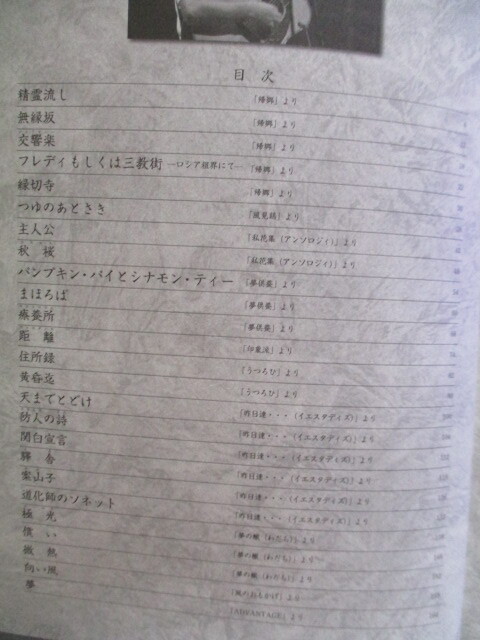 目次
精霊流し 「帰郷」より
無縁坂 「帰郷」より
交響楽 「帰郷」より
フレディもしくは三教街 ―ロシア租界にて― 「帰郷」より
縁切寺 「帰郷」より
つゆのあとさき 「風見鶏」より
主人公 「私花集(アンソロジィ)」より
秋桜 「私花集(アンソロジィ)」より
パンプキン・パイとシナモン・ティー 「夢供養」より
まほろば 「夢供養」より
療養所 「夢供養」より
距離 「印象派」より
住所録 「うつろひ」より
黄昏迄 「うつろひ」より
天までとどけ 「昨日達・・・(イエスタデイズ)」より
防人の詩 「昨日達・・・(イエスタデイズ)」より
関白宣言 「昨日達・・・(イエスタデイズ)」より
驛舎 「昨日達・・・(イエスタデイズ)」より
案山子 「昨日達・・・(イエスタデイズ)」より
道化師のソネット 「昨日達・・・(イエスタデイズ)」より
極光 「夢の轍(わだち)」より
償い 「夢の轍(わだち)」より
微熱 「夢の轍(わだち)」より
向い風 「風のおもかげ」より
夢 「ADVANTAGE」より